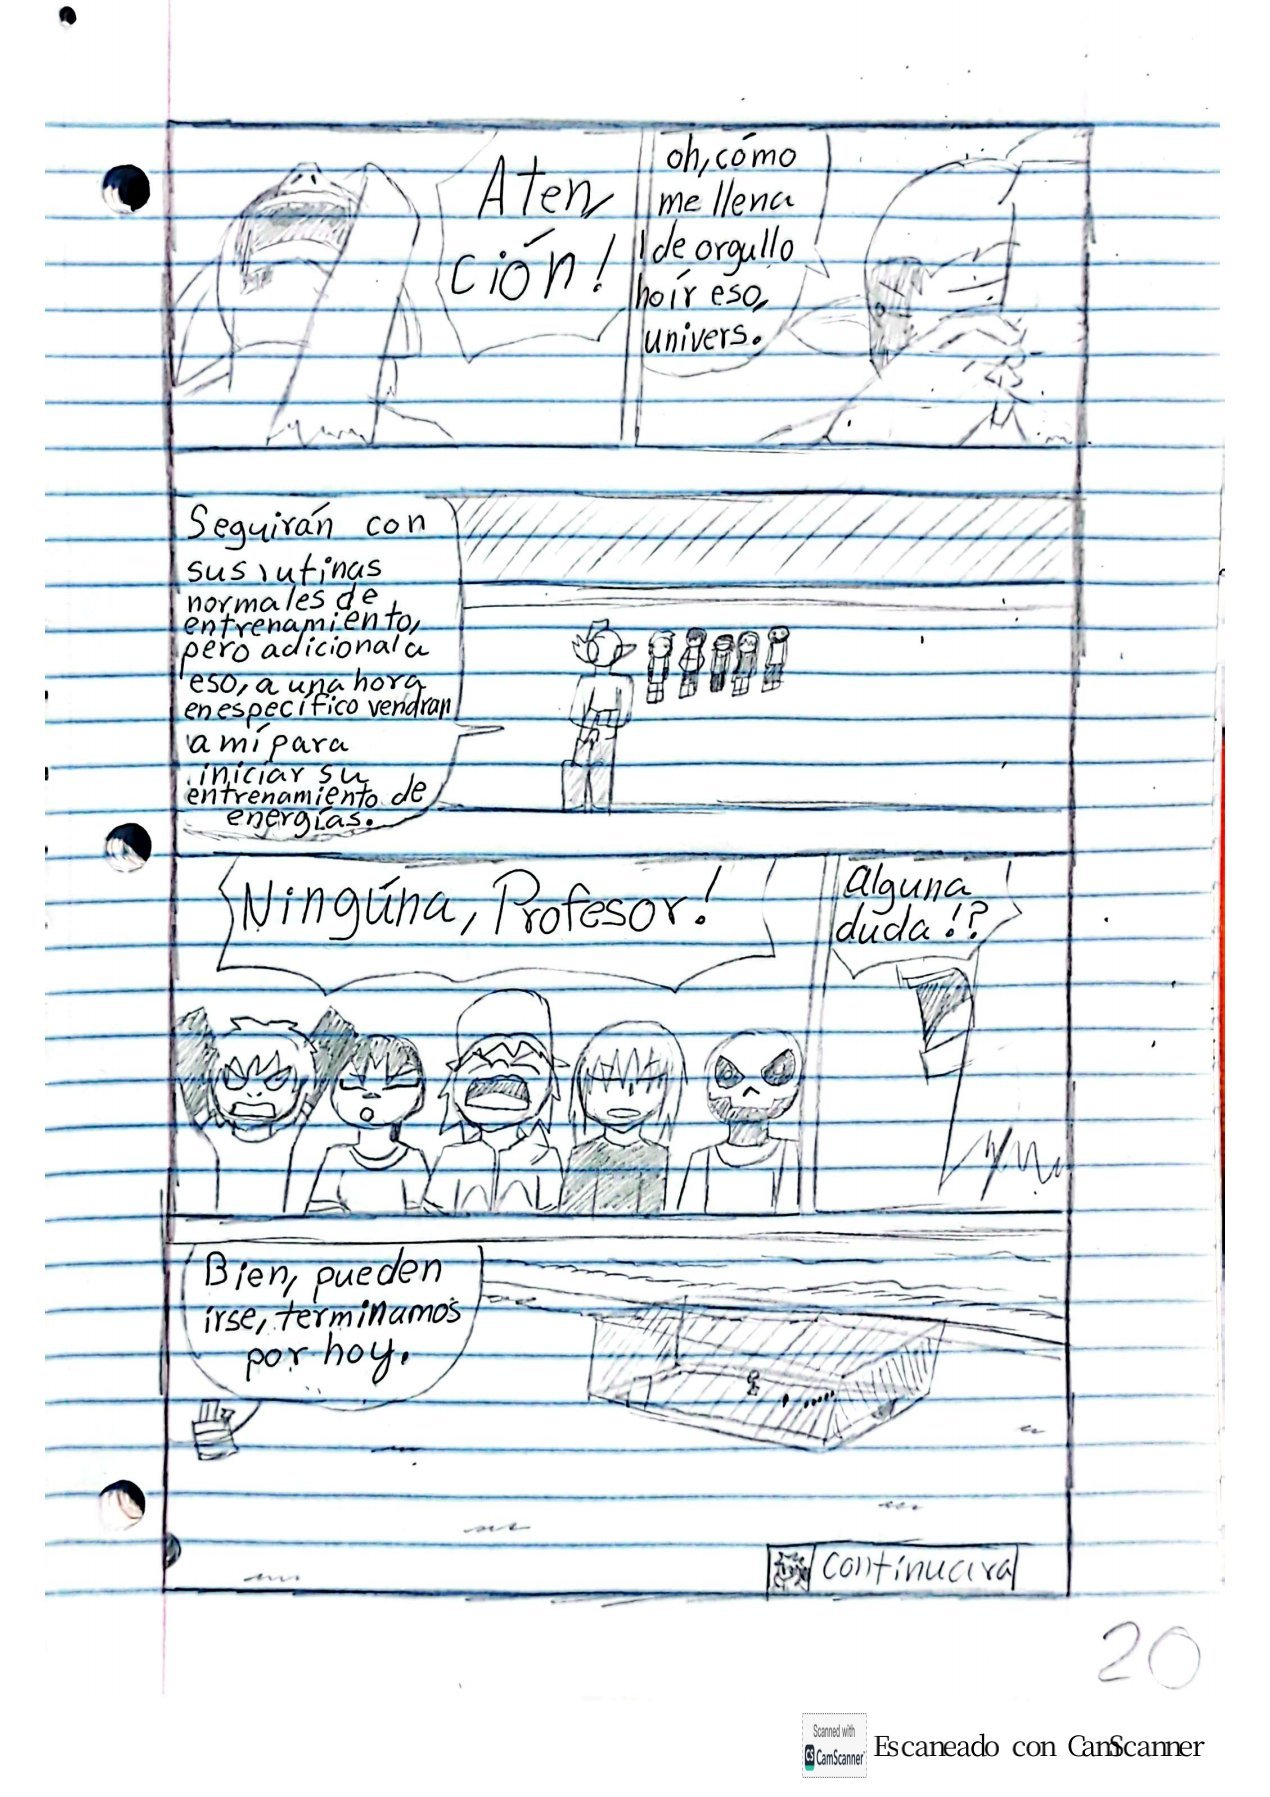 oh, cómo
me llena
de orgullo
hoír eso,
univers.
Aten,
ción!
Seguirán con
sus rutinas
normales de
entrenamiento,
pero adicional a
eso, a una hora
en específico vendrán
a mí para
iniciar su
entrenamiento de
energías.
alguna
duda!?
Ningúna, Profesor!
Bien, pueden
irse, terminamos
por hoy.
continuara
20
Scanned with
CS CamScanner
Escaneado con CamScanner